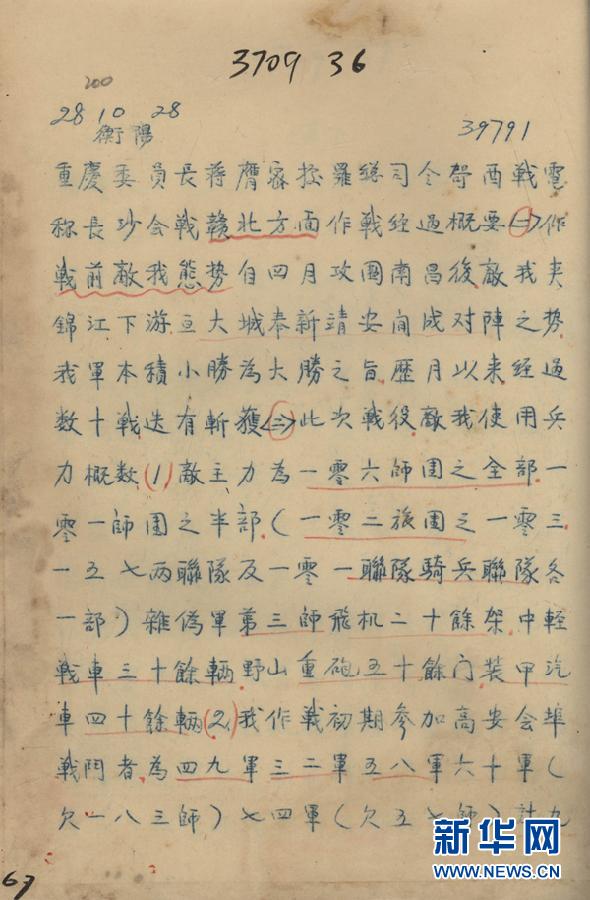 3709 36
200
28 10 28
衡陽
39791
重慶委員長蔣膺密拉羅總司令卓英酉戰電
称長沙会戰贛北方面作戰经过概要㈠作
戰前敵我態势自四月攻围南昌後敵我夹
錦江下游亘大城奉新靖安间成对陣之势
我軍本積小勝為大勝之旨歷月以来经過
数十戰迭有斬獲㈡此次戰役敵我使用兵
力概数(1)敵主力為一零六師團之全部一
零一師團之半部(一零二旅團之一零三
一五七两聯隊及一零一聯隊騎兵聯隊各
一部)雜偽軍第三師飛机二十餘架中輕
戰車三十餘輛野山重砲五十餘门装甲汽
車四十餘輛(2)我作戰初期参加高安会埠
戰鬥者為四九軍三二軍五八軍六十軍(
欠一八三師)七四軍(欠五七師)計九
67
新华网
WWW.NEWS.CN